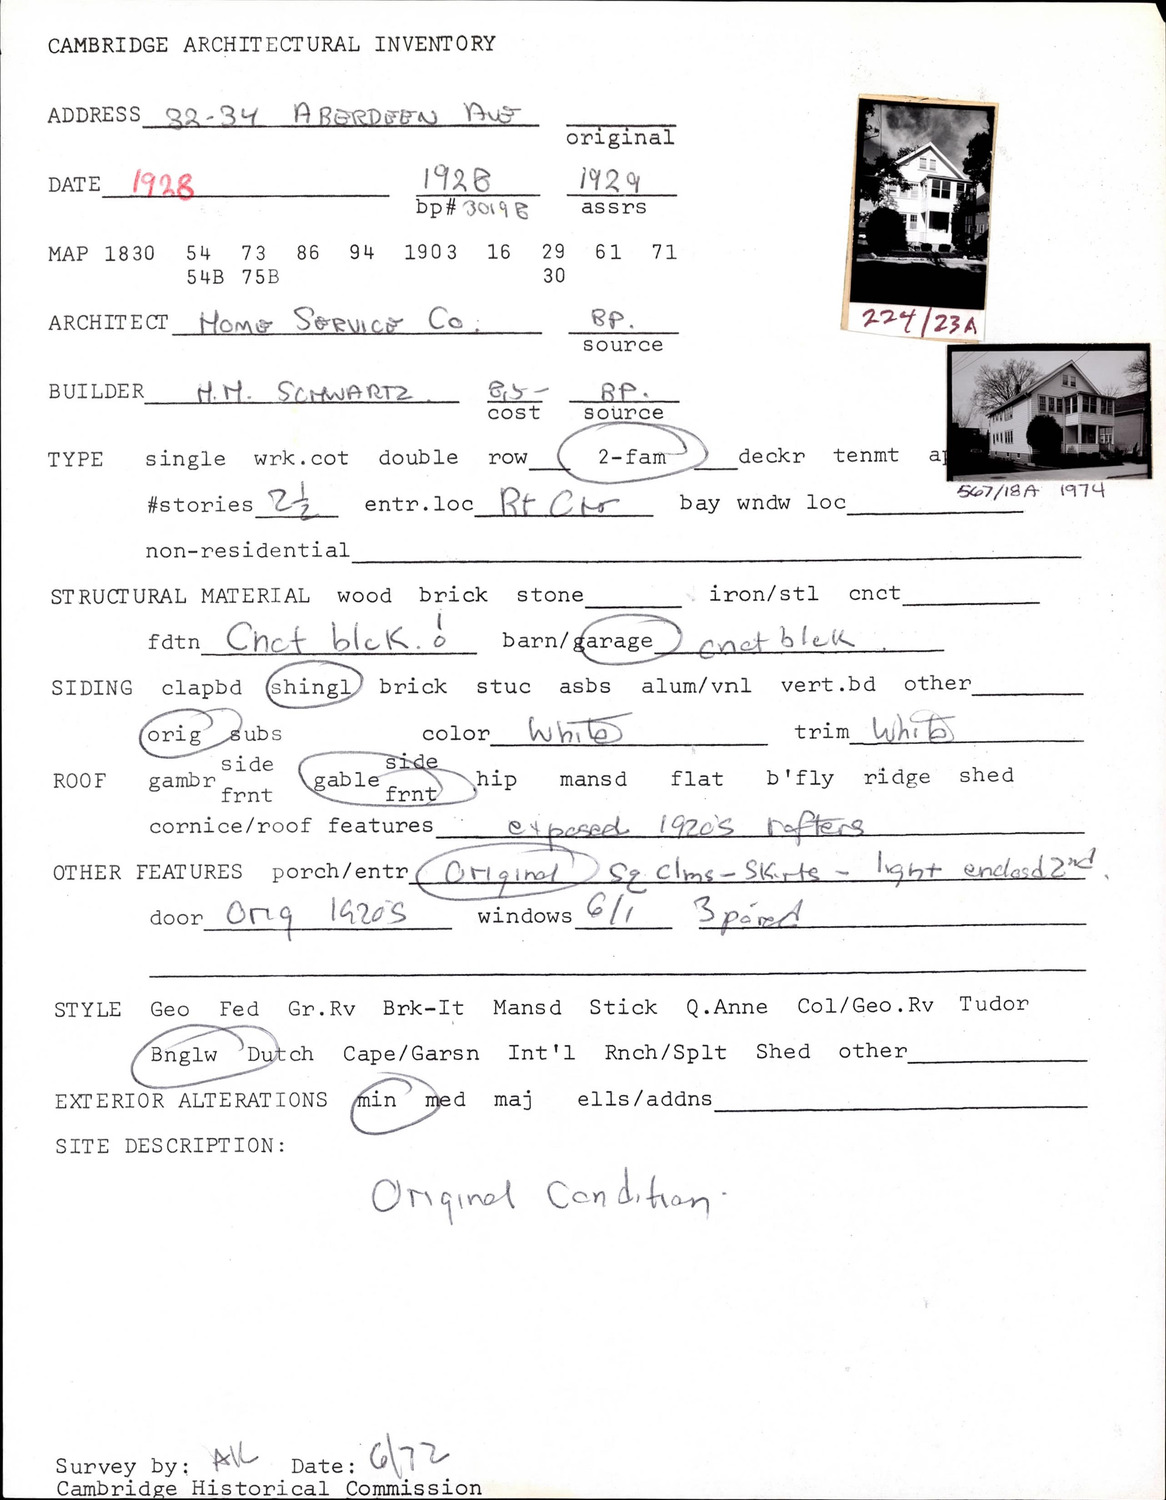 CAMBRIDGE ARCHITECTURAL INVENTORY
ADDRESS 32-34 ABERDEEN AVE
original
DATE 1928 1928 1929
bp# 30198 assrs
MAP 1830 54 73 86 94 1903 16 29 61 71
54B 75B 30
224/23A
ARCHITECT HOME SERVICE CO. BP.
source
BUILDER H.M. SCHWARTZ 8,5- BP.
cost source
TYPE single wrk.cot double row 2-fam deckr tenmt a
567/18A 1974
#stories 2½ entr.loc Rt Ctr bay wndw loc
non-residential
STRUCTURAL MATERIAL wood brick stone iron/stl cnct
fdtn Cnct blck. ! barn/garage cnct blck
SIDING clapbd shingl brick stuc asbs alum/vnl vert.bd other
orig subs color White trim White
ROOF gambr side frnt gable side frnt hip mansd flat b'fly ridge shed
cornice/roof features exposed 1920's rafters
OTHER FEATURES porch/entr Original Sq clms - Skirts - light enclosd 2nd.
door Orig 1920's windows 6/1 3 paired
STYLE Geo Fed Gr.Rv Brk-It Mansd Stick Q.Anne Col/Geo.Rv Tudor
Bnglw Dutch Cape/Garsn Int'l Rnch/Splt Shed other
EXTERIOR ALTERATIONS min med maj ells/addns
SITE DESCRIPTION:
Original Condition.
Survey by: AK Date: 6/72
Cambridge Historical Commission